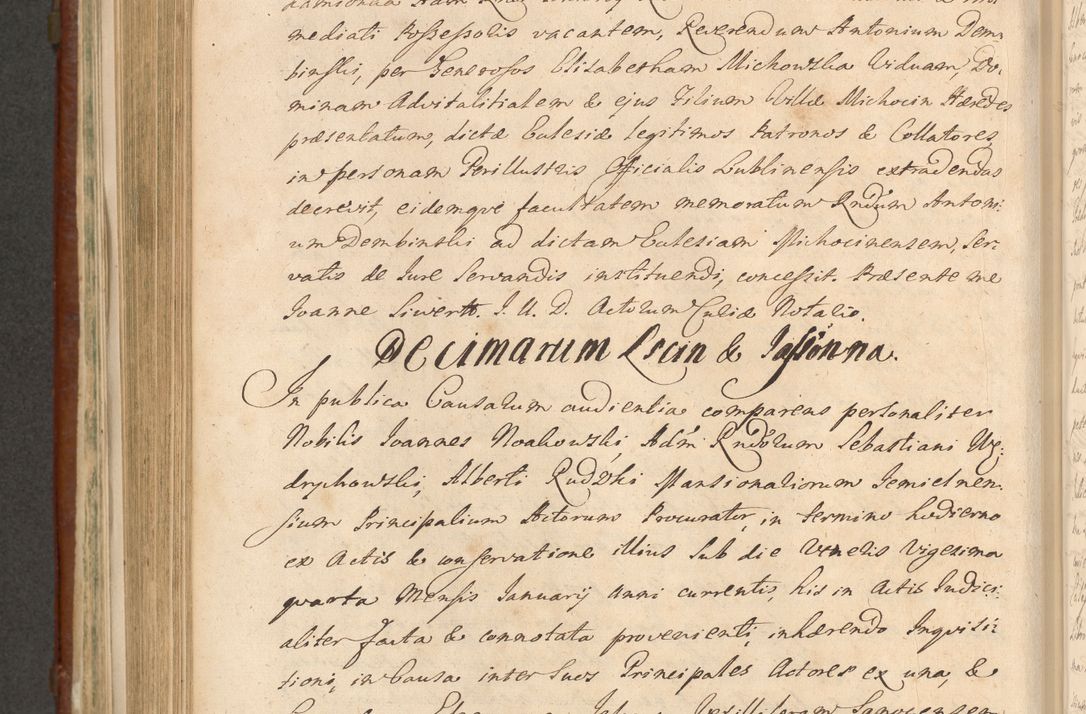 mediati Possessoris vacantem, Reverendum Antonium Dem-
binski, per Generosos Elisabetham Michowska Viduam, Do-
minam Advitalitialem & ejus Filium Villæ Michocin Hæredes
præsentatum, dictæ Eclesiæ legitimos Patronos & Collatores,
in personam Perillustris Officialis Lublinensis extradendas
decrevit, eidemqve facultatem memoratum Rndum Antoni-
um Dembinski ad dictam Eclesiam Michocinensem, Ser-
vatis de Jure Servandis instituendi, concessit. Præsente me
Joanne Siwert. J. U. D. Actorum Curiæ Notario.
Decimarum Lscin & Jassonna.
In publica Causarum audientia comparens personaliter
Nobilis Joannes Noakowski, Adm Rndorum Sebastiani Wę-
drychowski, Alberti Rudzki Mansionariorum Jemielnen-
sium Principalium Actorum Procurator, in termino hodierno
ex Actis & conservatione illius sub die Veneris Vigesima
qvarta Mensis Januarij Anni currentis, his in Actis Judici-
aliter facta & connotata provenienti, inhærendo Inqvisi-
tioni, in Causa inter Suos Principales Actores ex una, &